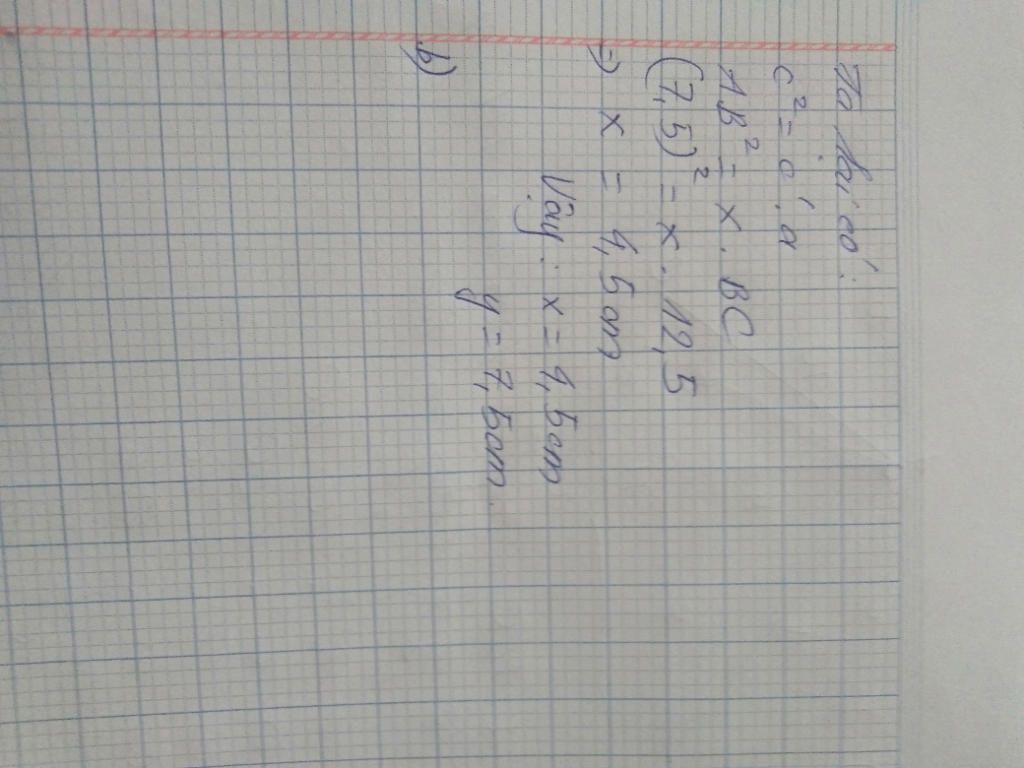 Ta lại có:
c² = c'.a
AB² = x . BC
(7,5)² = x . 12,5
=> x = 4,5cm
Vậy: x = 4,5cm
y = 7,5cm.
b)